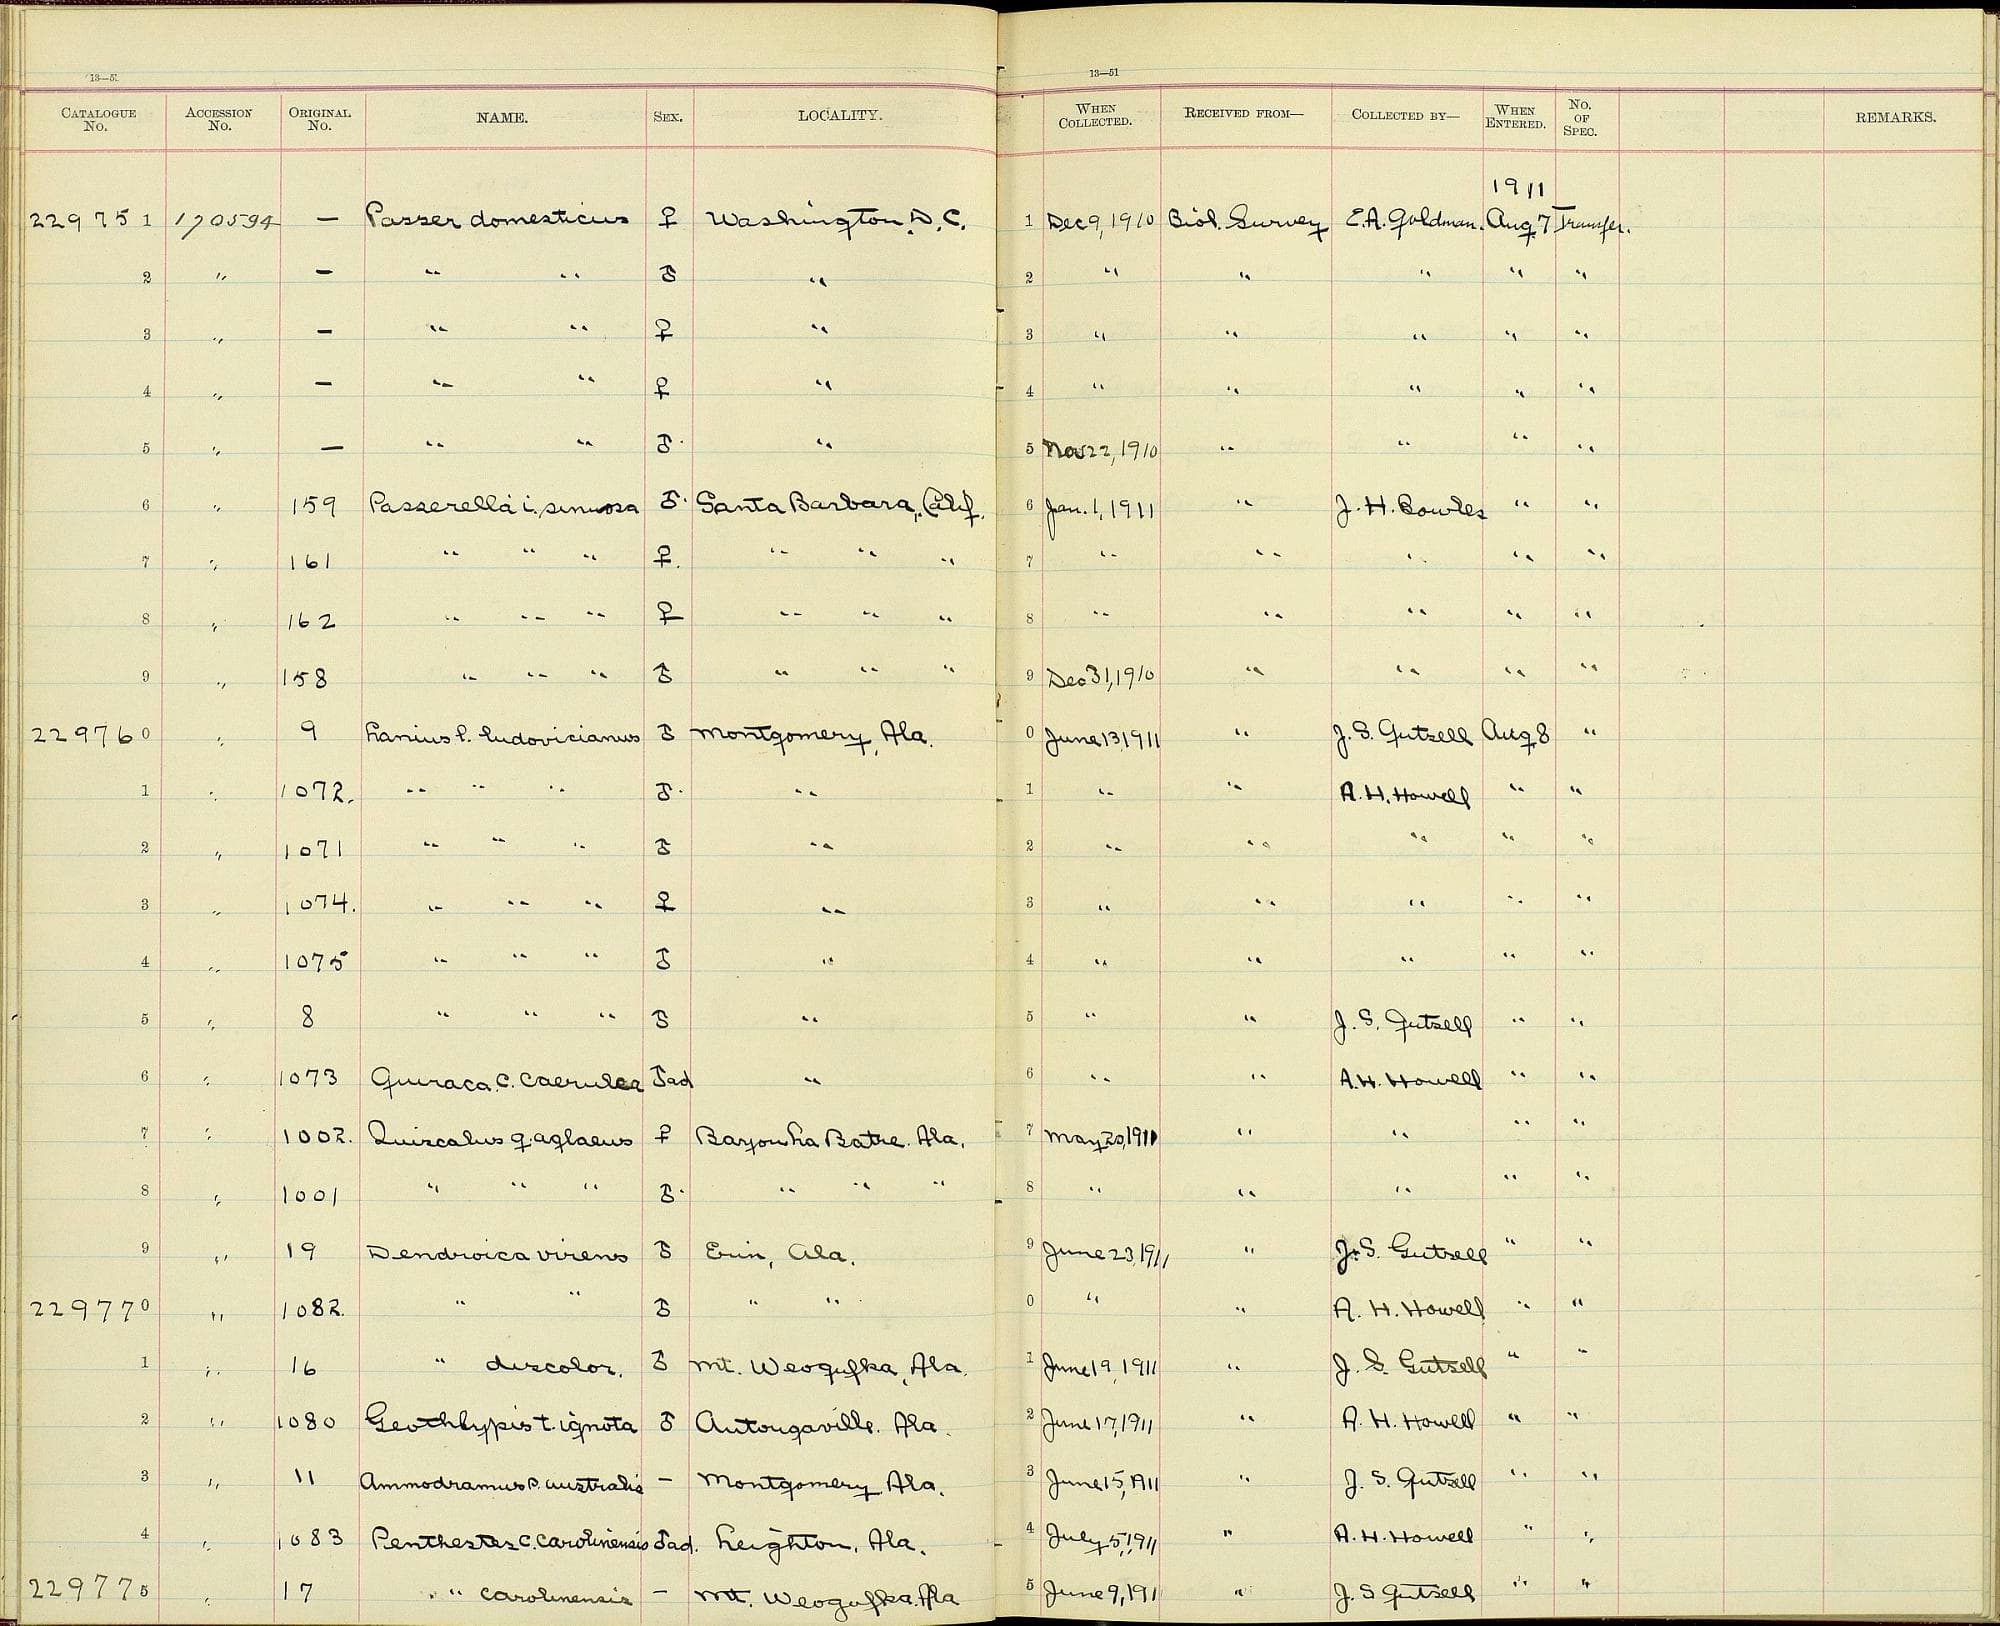 13—51 13—51
CATALOGUE No. ACCESSION No. ORIGINAL No. NAME. SEX. LOCALITY. WHEN COLLECTED. RECEIVED FROM— COLLECTED BY— WHEN ENTERED. No. OF SPEC. REMARKS.
1911
229751 170594 — Passer domesticus ♀ Washington, D.C. 1 Dec 9, 1910 Biol. Survey E.A. Goldman. Aug 7 Transfer.
2 " — " " ♂ " 2 " " " " "
3 " — " " ♀ " 3 " " " " "
4 " — " " ♀ " 4 " " " " "
5 " — " " ♂. " 5 Nov 22, 1910 " " " "
6 " 159 Passerella i. sinuosa ♂. Santa Barbara, Calif. 6 Jan. 1, 1911 " J. H. Bowles " "
7 " 161 " " " ♀. " " " 7 " " " " "
8 " 162 " " " ♀ " " " 8 " " " " "
9 " 158 " " " ♂ " " " 9 Dec 31, 1910 " " " "
229760 " 9 Lanius l. ludovicianus ♂ Montgomery, Ala. 0 June 13, 1911 " J. S. Gutsell Aug 8 "
1 " 1072. " " " ♂. " 1 " " A. H. Howell " "
2 " 1071 " " " ♂ " 2 " " " " "
3 " 1074. " " " ♀ " 3 " " " " "
4 " 1075 " " " ♂ " 4 " " " " "
5 " 8 " " " ♂ " 5 " " J. S. Gutsell " "
6 " 1073 Guiraca. c. caerulea ♂ad " 6 " " A. H. Howell " "
7 " 1002. Quiscalus q. aglaeus ♀ Bayou La Batre. Ala. 7 May 20, 1911 " " " "
8 " 1001 " " " ♂. " " " 8 " " " " "
9 " 19 Dendroica virens ♂ Erin, Ala. 9 June 23, 1911 " J. S. Gutsell " "
229770 " 1082. " " ♂ " " 0 " " A. H. Howell " "
1 " 16 " discolor. ♂ Mt. Weogufka, Ala. 1 June 19, 1911 " J. S. Gutsell " "
2 " 1080 Geothlypis t. ignota ♂ Autougaville. Ala. 2 June 17, 1911 " A. H. Howell " "
3 " 11 Ammodramus s. australis — Montgomery Ala. 3 June 15, 1911 " J. S. Gutsell " "
4 " 1083 Penthestes c. carolinensis ♂ad. Leighton. Ala. 4 July 5, 1911 " A. H. Howell " "
229775 " 17 " carolinensis — Mt. Weogufka. Ala 5 June 9, 191 " J. S Gutsell " "